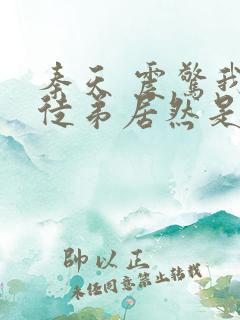 秦天 震驚我
徒弟居然是
帥以正
未经同意禁止转载